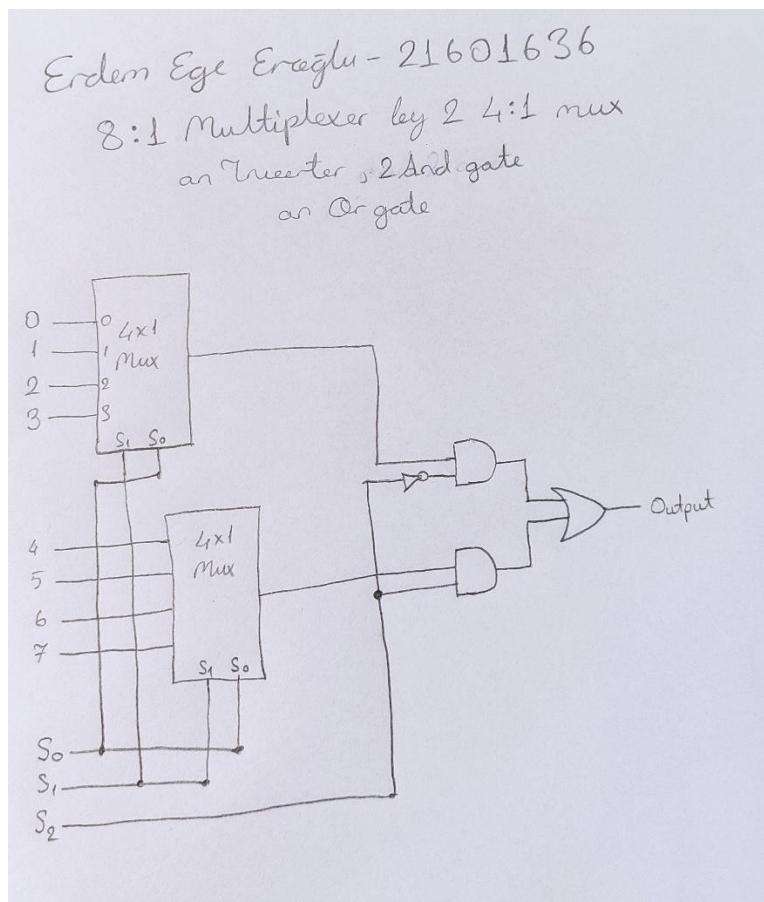 Erdem Ege Eroğlu - 21601636
8:1 Multiplexer by 2 4:1 mux
an Inverter, 2 And gate
an Or gate
0
0
4x1
Mux
1
1
2
2
3
3
S1 S0
4
4x1
Mux
5
6
7
S1 S0
Output
S0
S1
S2